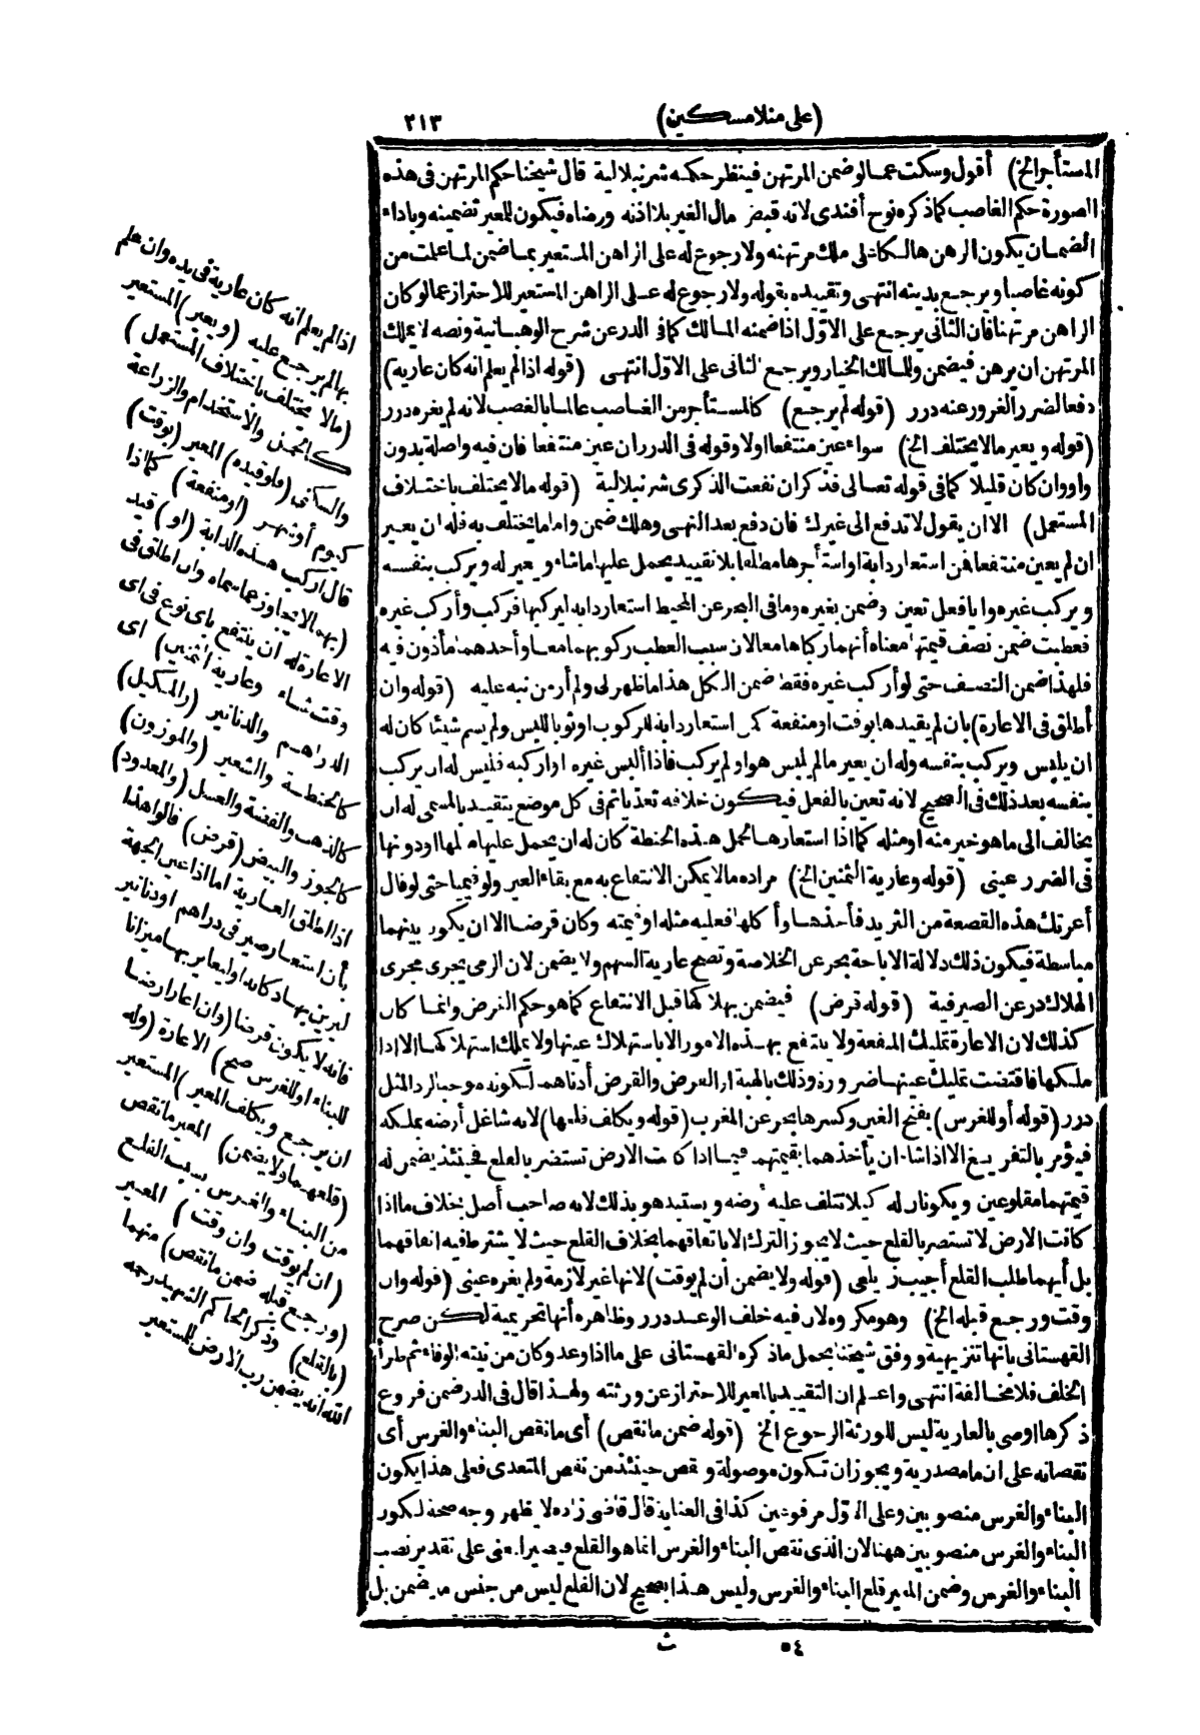 (على منلا مسكين) ٢١٣
المستأجر الخ) أقول وسكت عما لو ضمن المرتهن فينظر حكمه شرنبلالية قال شيخنا حكم المرتهن فى هذه
الصورة حكم الغاصب كما ذكره نوح أفندى لانه قبض مال الغير بلا اذنه ورضاه فيكون للمعير تضمينه وباداء
الضمان يكون الرهن هالكا على ملك مرتهنه ولا رجوع له على الراهن المستعير بما ضمن لما علمت من
كونه غاصبا ويرجع بدينه انتهى وتقييده بقوله ولا رجوع له على الراهن المستعير للاحتراز عما لو كان
الراهن مرتهنا فان الثانى يرجع على الاول اذا ضمنه المالك كما فى الدر عن شرح الوهبانية ونصه لا يملك
المرتهن ان يرهن فيضمن وللمالك الخيار ويرجع الثانى على الاول انتهى (قوله اذا لم يعلم انه كان عارية)
دفعا لضرر الغرور عنه درر (قوله لم يرجع) كالمستأجر من الغاصب عالما بالغصب لانه لم يغره درر
(قوله ويعير ما لا يختلف الخ) سواء عين منتفعا اولا وقوله فى الدرر ان عين منتفعا فان فيه واصلة بدون
واو وان كان قليلا كما فى قوله تعالى فذكر ان نفعت الذكرى شرنبلالية (قوله ما لا يختلف باختلاف
المستعمل) الا ان يقول لا تدفع الى غيرك فان دفع بعد النهى وهلك ضمن واما ما يختلف به فله ان يعير
ان لم يعين منتفعا فمن استعار دابة او استأجرها مطلقا بلا تقييد يحمل عليها ما شاء ويعير له ويركب بنفسه
ويركب غيره وايا فعل تعين وضمن بغيره وما فى البحر عن المحيط استعار دابة ليركبها فركب وأركب غيره
فعطبت ضمن نصف قيمتها معناه أنهما ركباها معا لان سبب العطب ركوبهما معا وأحدهما مأذون فيه
فلهذا ضمن النصف حتى لو أركب غيره فقط ضمن الكل هذا ما ظهر لى ولم أر من نبه عليه (قوله وان
أطلق فى الاعارة) بان لم يقيدها بوقت او منفعة كمن استعار دابة للركوب او ثوبا للبس ولم يسم شيئا كان له
ان يلبس ويركب بنفسه وله ان يعير ما لم يلبس هو او لم يركب فاذا ألبس غيره او اركبه فليس له ان يركب
بنفسه بعد ذلك فى الصحيح لانه تعين بالفعل فيكون خلافه تعديا ثم فى كل موضع يتقيد بالمسمى له ان
يخالف الى ما هو خير منه او مثله كما اذا استعارها لحمل هذه الحنطة كان له ان يحمل عليها مثلها او دونها
فى الضرر عينى (قوله وعارية الثمنين الخ) مراده ما لا يمكن الانتفاع به مع بقاء العين ولو قيميا حتى لو قال
أعرتك هذه القصعة من الثريد فأخذها وأكلها فعليه مثله او قيمته وكان قرضا الا ان يكون بينهما
مباسطة فيكون ذلك دلالة الاباحة بحر عن الخلاصة وتصح عارية السهم ولا يضمن لان الرمى يجرى مجرى
الهلاك در عن الصيرفية (قوله قرض) فيضمن بهلاكها قبل الانتفاع كما هو حكم القرض وانما كان
كذلك لان الاعارة تمليك المنفعة ولا ينتفع بهذه الامور الا باستهلاك عينها ولا يملك استهلاكها الا اذا
ملكها فاقتضت تمليك عينها ضرورة وذلك بالهبة او القرض والقرض أدناهما لكونه موجبا لرد المثل
درر (قوله أو للغرس) بفتح الغين وكسرها بحر عن المغرب (قوله ويكلف قلعها) لانه شاغل أرضه بملكه
فيؤمر بالتفريغ الا اذا شاء ان يأخذهما بقيمتهما فيما اذا كانت الارض تستضر بالقلع فحينئذ يضمن له
قيمتهما مقلوعين ويكونان له كيلا تتلف عليه أرضه ويستبد هو بذلك لانه صاحب أصل بخلاف ما اذا
كانت الارض لا تستضر بالقلع حيث لا يجوز الترك الا باتفاقهما بخلاف القلع حيث لا يشترط فيه اتفاقهما
بل أيهما طلب القلع أجيب زيلعى (قوله ولا يضمن أن لم يوقت) لانها غير لازمة ولم يغره عينى (قوله وان
وقت ورجع قبله الخ) وهو مكروه لان فيه خلف الوعد درر وظاهره أنها تحريمية لكن صرح
القهستانى بانها تنزيهية ووفق شيخنا بحمل ما ذكره القهستانى على ما اذا وعد وكان من نيته الوفاء ثم طرأ
الخلف فلا مخالفة انتهى واعلم ان التقييد بالمعير للاحتراز عن ورثته ولهذا قال فى الدر ضمن فروع
ذكرها اوصى بالعارية ليس للورثة الرجوع الخ (قوله ضمن ما نقص) أى ما نقص البناء والغرس أى
نقصانه على ان ما مصدرية ويجوز ان تكون موصولة ونقص حينئذ من نقص المتعدى فعلى هذا يكون
البناء والغرس منصوبين وعلى الاول مرفوعين كذا فى العناية قال قاضى زاده لا يظهر وجه صحة لكون
البناء والغرس منصوبين ههنا لان الذى نقص البناء والغرس انما هو القلع فيصير المعنى على تقدير نصب
البناء والغرس وضمن المعير قلع البناء والغرس وليس هذا بصحيح لان القلع ليس من جنس ما يضمن بل
اذا لم يعلم انه كان عارية فى يده وان علم
بها لم يرجع عليه (ويعير) المستعير
(ما لا يختلف باختلاف المستعمل)
كالحمل والاستخدام والزراعة
والسكنى (فلو قيده) المعير (بوقت)
كيوم أو شهر (او منفعة) كما اذا
قال اركب هذه الدابة (او) قيد
(بهما لا يتجاوز عما سماه وان اطلق فى
الاعارة له ان ينتفع باى نوع فى اى
وقت شاء وعارية الثمنين) اى
الدراهم والدنانير (والمكيل)
كالحنطة والشعير (والموزون)
كالذهب والفضة والعسل (والمعدود)
كالجوز والبيض (قرض) قالوا هذا
اذا اطلق العارية اما اذا عين الجهة
بأن استعار صيرفى دراهم او دنانير
ليزين بها دكانه او ليعاير بها ميزانا
فانه لا يكون قرضا (وان اعار ارضا
للبناء او للغرس صح) الاعارة (وله
ان يرجع ويكلف المعير) المستعير
(قلعهما ولا يضمن) المعير ما نقص
من البناء والغرس بسبب القلع
(ان لم يوقت وان وقت) المعير
(ورجع قبله ضمن ما نقص) منهما
(بالقلع) وذكر الحاكم الشهيد رحمه
الله انه يضمن رب الارض للمستعير
٥٤ ث